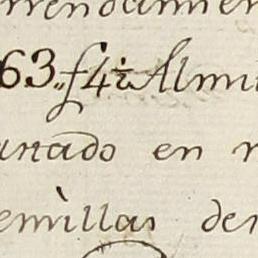 rrendamien
63 f 4½ Almu
anado en
emillas de